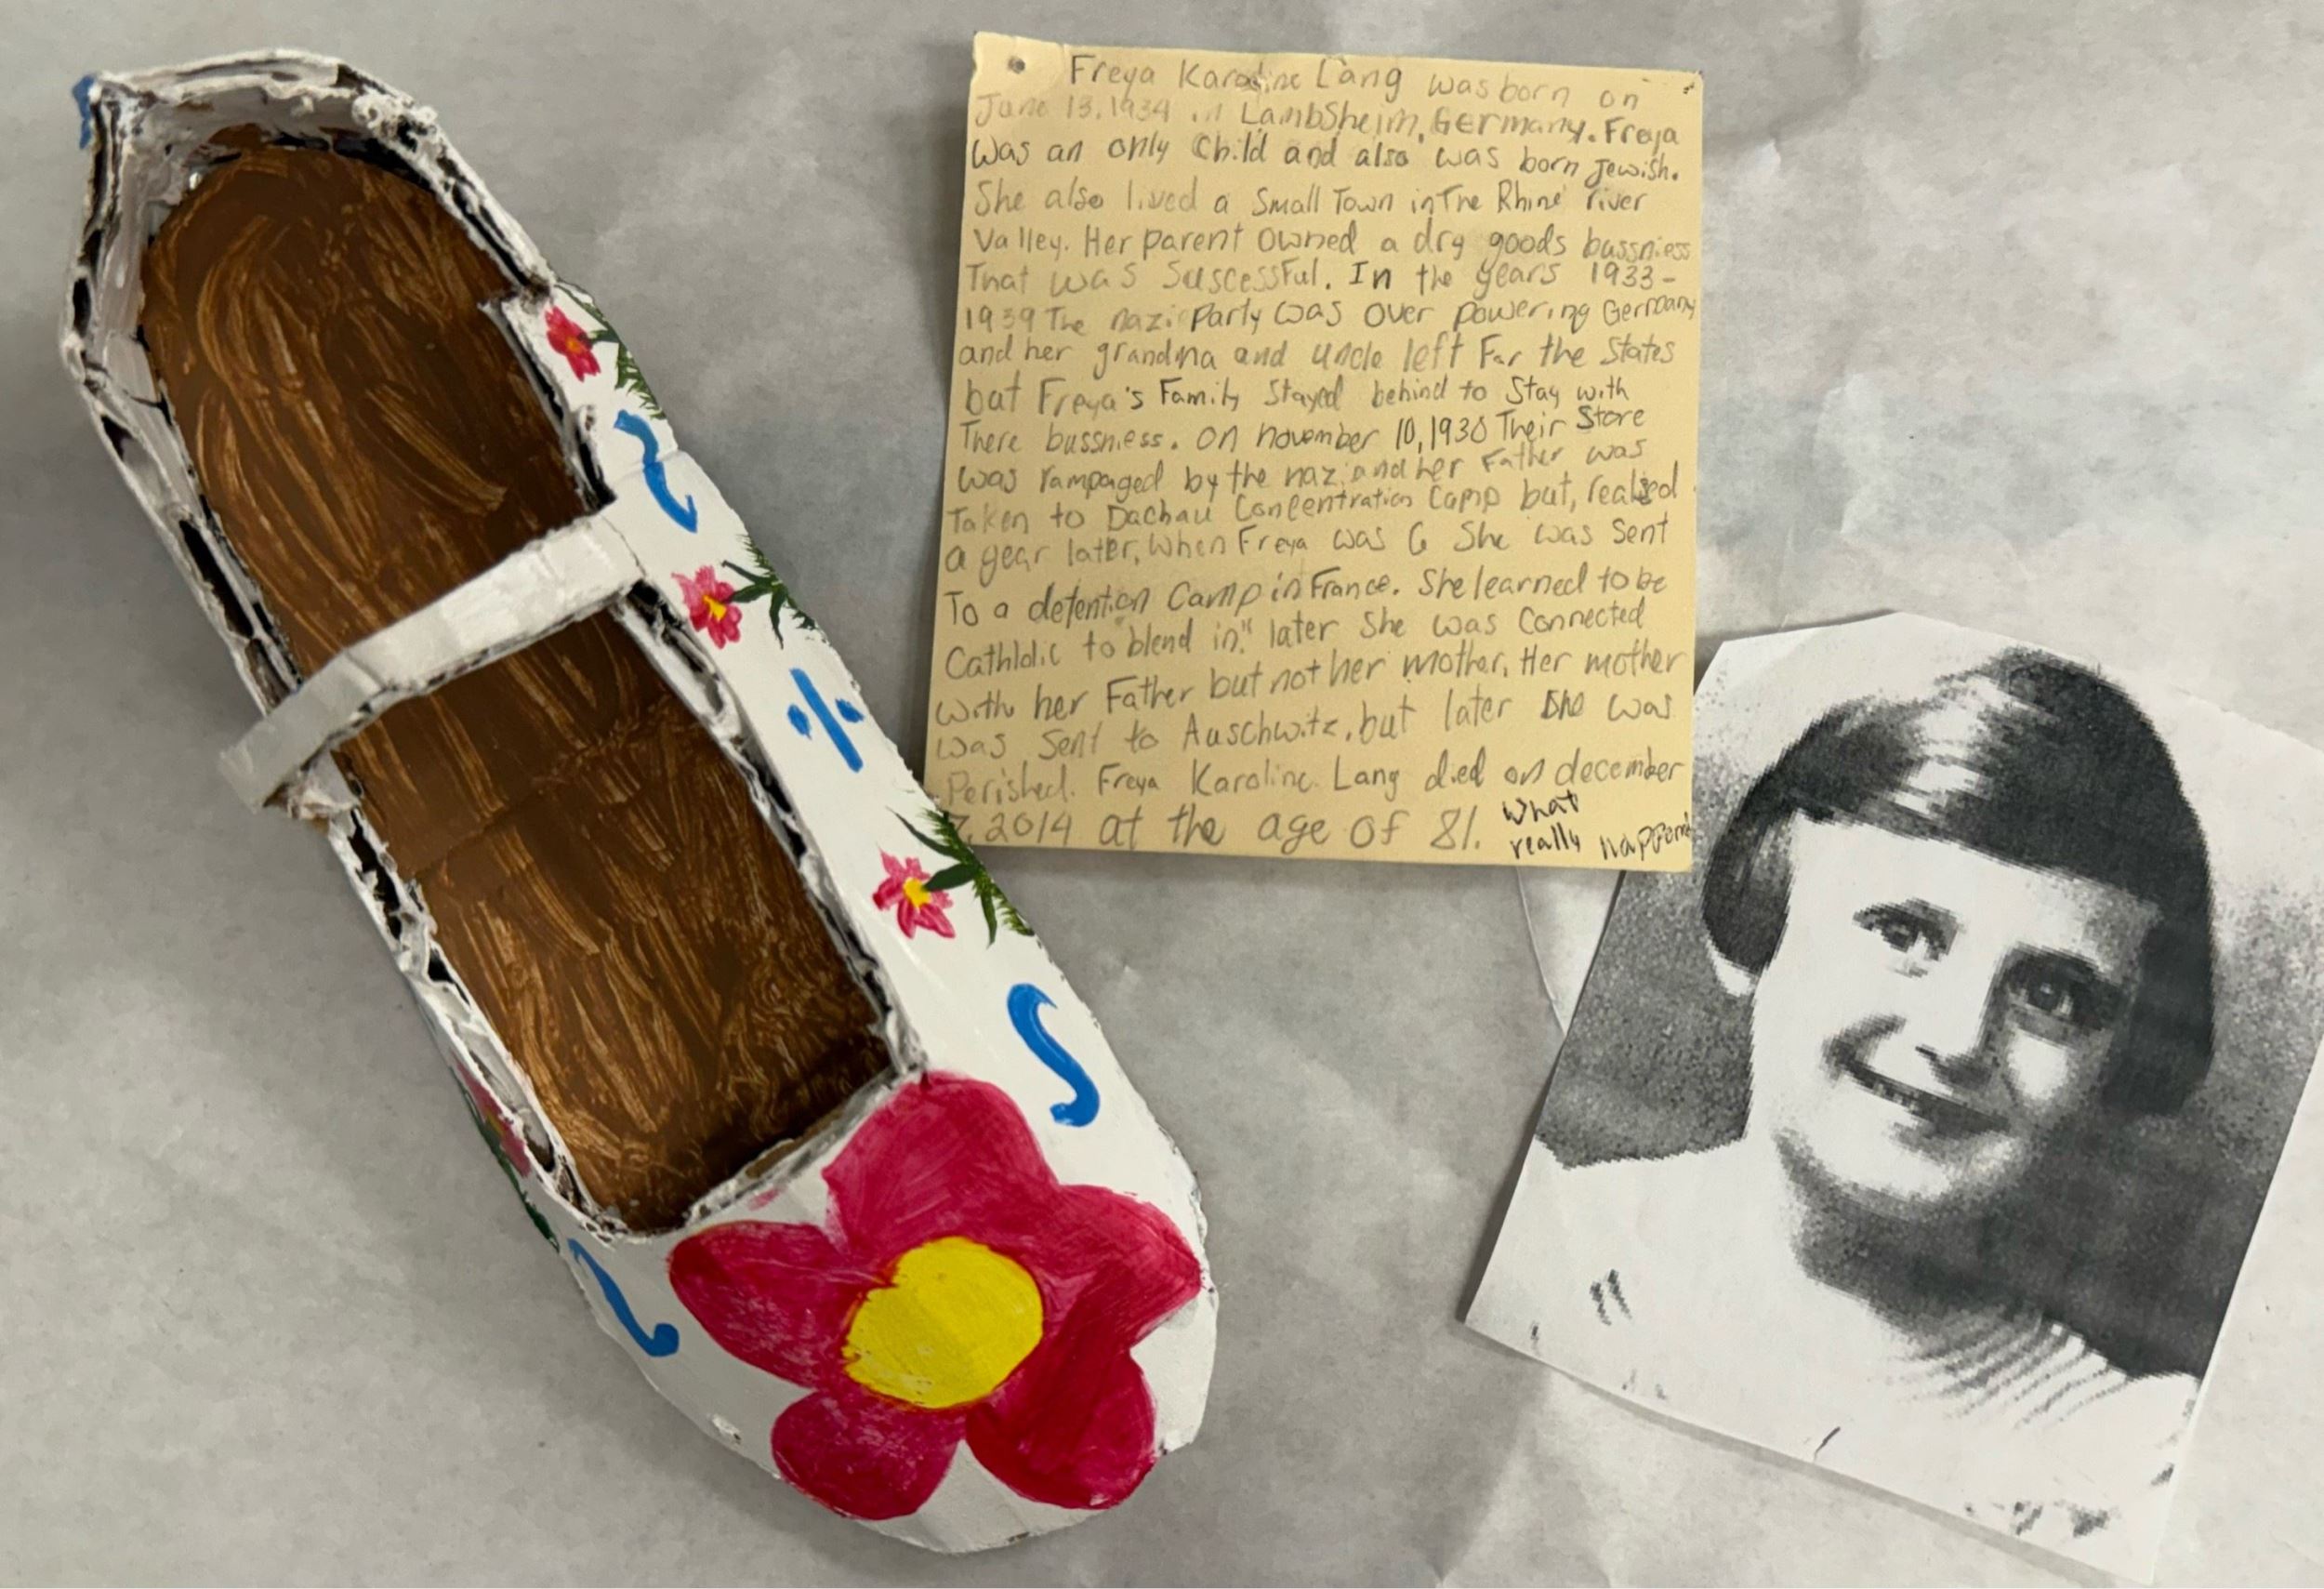 Freya Karoline Lang was born on
June 13, 1934 in Lambsheim, Germany. Freya
was an only Child and also was born Jewish.
She also lived a Small Town in The Rhine river
Valley. Her parent owned a dry goods bussniess
That was Suscessful. In the years 1933-
1939 The nazi Party was over powering Germany
and her grandma and uncle left For the States
but Freya's Family Stayed behind to Stay with
There bussniess. On november 10, 1938 Their Store
was rampaged by the nazi and her Father was
Taken to Dachau Concentration Camp but, realsed
a year later, When Freya was 6 She was Sent
To a detention Camp in France. She learned to be
Cathlolic to "blend in." later She was Connected
with her Father but not her mother. Her mother
was Sent to Auschwitz, but later She was
Perished. Freya Karoline Lang died on december
7, 2014 at the age of 81. What
really